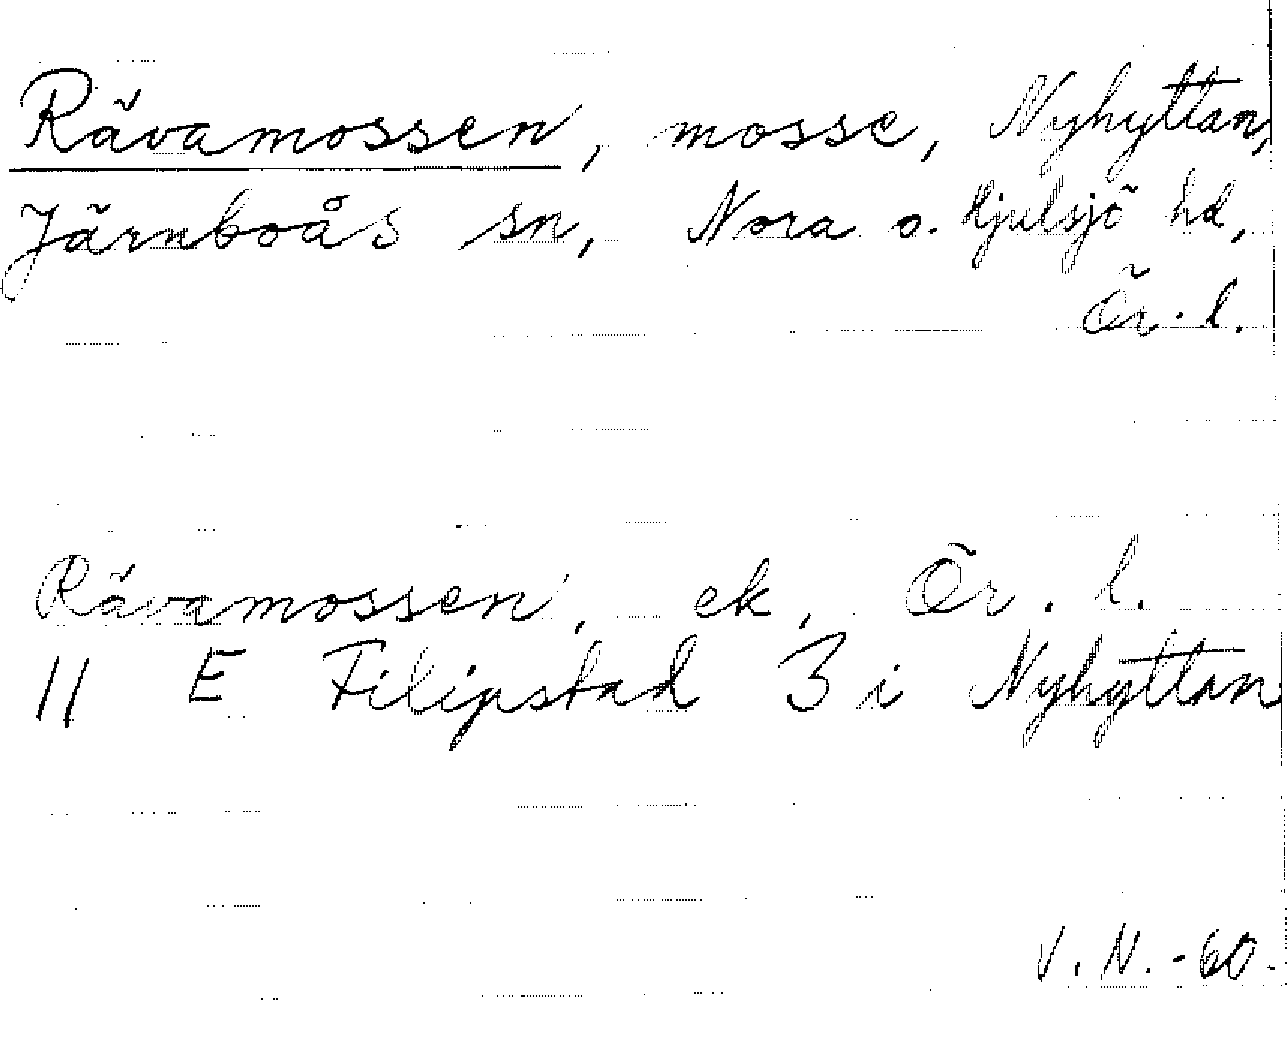 Rävamossen, mosse, Nyhyttan,
Järnboås sn, Nora o. Hjulsjö hd,
Ör. l.
Rävamossen, ek, Ör. l.
11 E Filipstad 3 i Nyhyttan
V. N. -60.